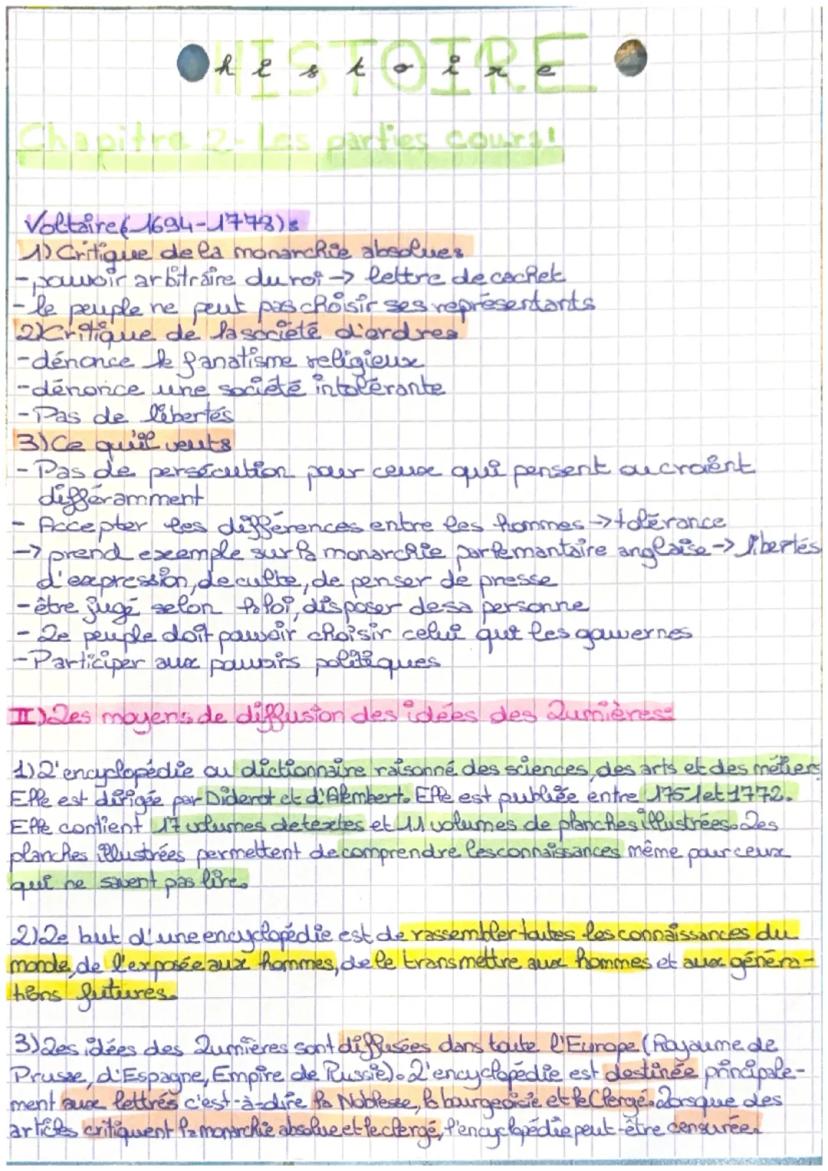 HISTOIRE
histoire
Chapitre 2- Les parties cours!
Voltaire (1694-1778):
1) Critique de la monarchie absolue:
-pouvoir arbitraire du roi -> lettre de cachet
-le peuple ne peut pas choisir ses représentants
2)Critique de la société d'ordres
-dénonce le fanatisme religieux
-dénonce une société intolérante
-Pas de libertés
3) Ce qu'il veut:
- Pas de persécution pour ceux qui pensent ou croient
différamment
- Accepter les différences entre les hommes -> tolérance
-> prend exemple sur la monarchie parlemantaire anglaise -> libertés
d'expression, de culte, de penser de presse
-être jugé selon la loi, disposer de sa personne
- Le peuple doit pouvoir choisir celui qui les gouvernes
-Participer aux pouvoirs politiques
II) Les moyens de diffusion des idées des Lumières:
1) L'encyclopédie ou dictionnaire raisonné des sciences, des arts et des métiers
Elle est dirigée par Diderot et d'Alembert. Elle est publiée entre 1751 et 1772.
Elle contient 17 volumes de textes et 11 volumes de planches illustrées. Les
planches illustrées permettent de comprendre les connaissances même pour ceux
qui ne savent pas lire.
2) Le but d'une encyclopédie est de rassembler toutes les connaissances du
monde, de l'exposée aux hommes, de le transmettre aux hommes et aux généra-
tions futures.
3) Les idées des Lumières sont diffusées dans toute l'Europe (Royaume de
Prusse, d'Espagne, Empire de Russie). L'encyclopédie est destinée principale-
ment aux lettrés c'est-à-dire la Noblesse, la bourgeoisie et le Clergé. Lorsque des
articles critiquent la monarchie absolue et le clergé, l'encyclopédie peut-être censurée.